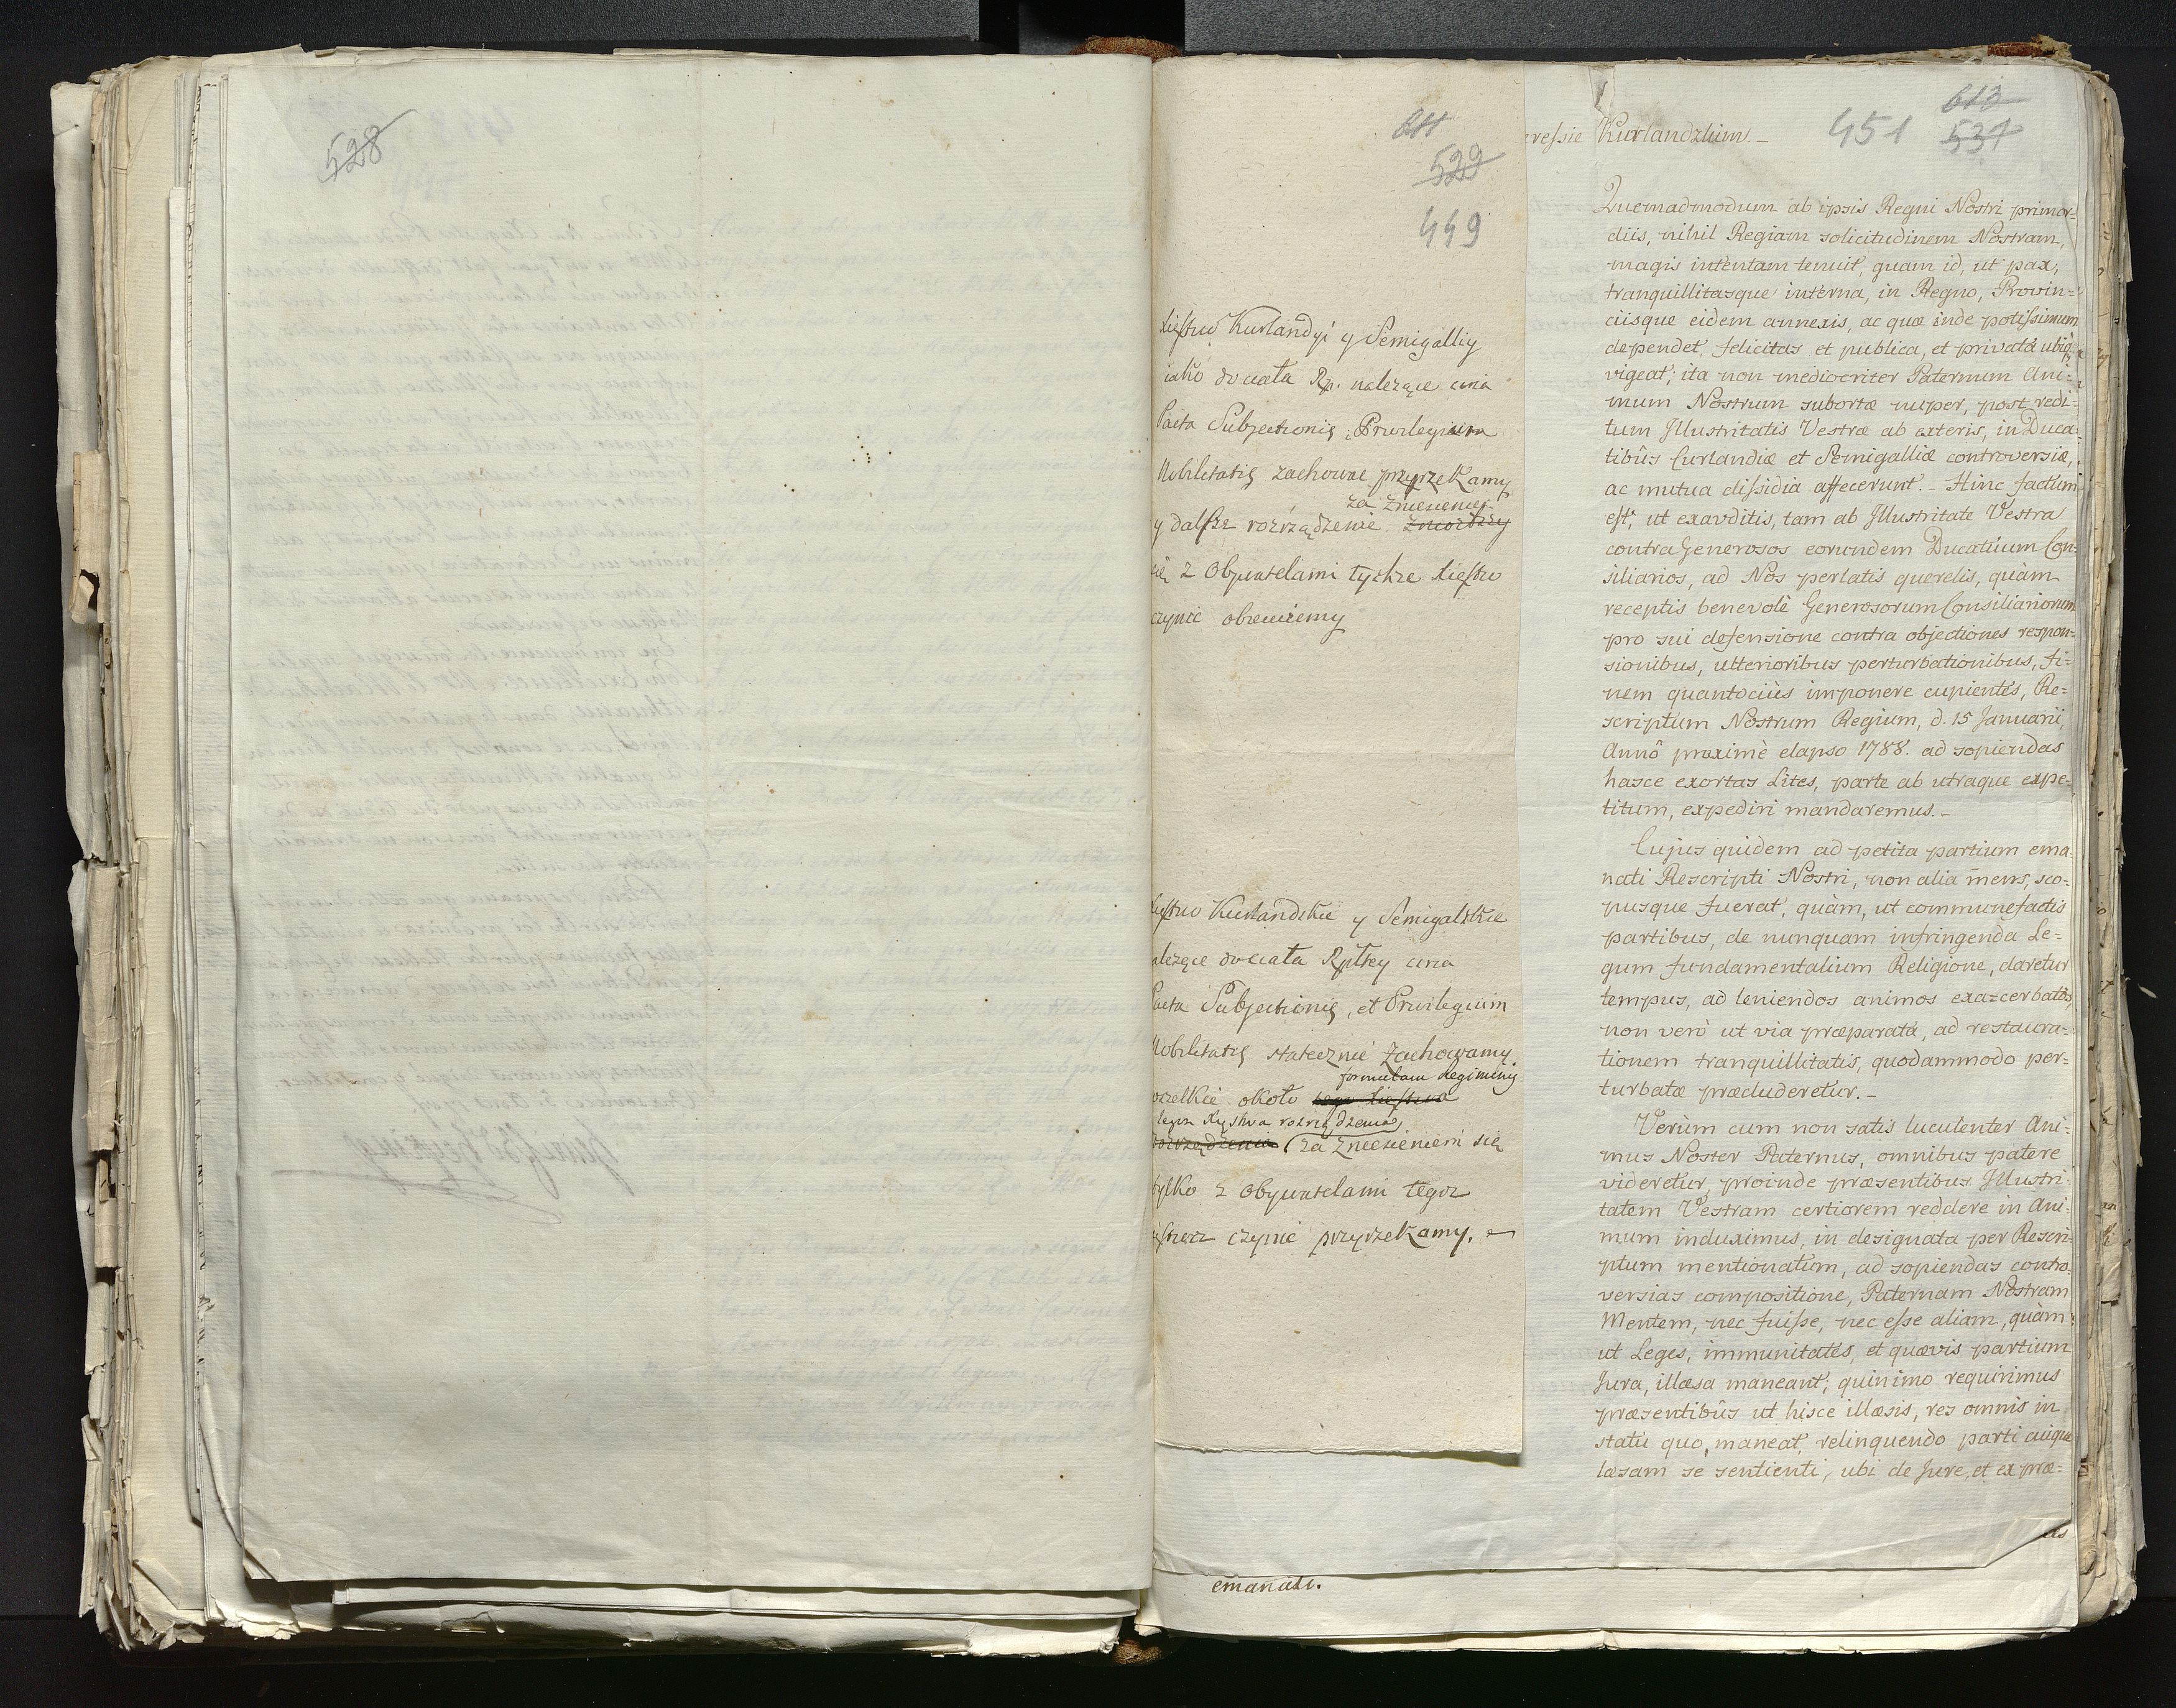 528
611
529
449
Xięstw Kurlandyi y Semigalliy
iako do ciała Rp. należące
Pacta Subjectionis, Privilegium
Nobilitatis zachować przyrzekamy
za zniesieniem
y dalsze rozrządzenie
się z Obywatelami tychże Xięstw
czynić obiecuiemy
Xięstwo Kurlandskie y Semigalskie
należące do ciała Rpltey
Pacta Subjectionis, et Privilegium
Nobilitatis statecznie zachowamy.
formulam Regiminis
wszelkie około tego Xięstwa
tegoż Xięstwa rozrządzenia
rozrządzenia za zniesieniem się
tylko z Obywatelami tegoż
Xięstwa czynić przyrzekamy.
emanati.
613
451 537
eressie Kurlandzkim. _
Quemadmodum ab ipsis Regni Nostri primor=
diis, nihil Regiam solicitudinem Nostram,
magis intentam tenuit, quam id, ut pax,
tranquillitasque interna, in Regno, Provin=
ciisque eidem annexis, ac quæ inde potissimum
dependet, felicitas et publica, et privata ubiq;
vigeat; ita non mediocriter Paternum Ani=
mum Nostrum subortæ nuper, post redi=
tum Illustritatis Vestræ ab exteris, in Duca=
tibûs Curlandiæ et Semigalliæ controversiæ,
ac mutua dissidia affecerunt. _ Hinc factum
est, ut exauditis, tam ab Illustritate Vestra
contra Generosos eorundem Ducatuum Con=
siliarios, ad Nos perlatis querelis, quàm
receptis benevolè Generosorum Consiliariorum
pro sui defensione contra objectiones respon=
sionibus, ulterioribus perturbationibus, fi=
nem quantociùs imponere cupientes, Re=
scriptum Nostrum Regium, d. 15 Januarii,
Annô proximè elapso 1788. ad sopiendas
hasce exortas Lites, parte ab utraque expe=
titum, expediri mandaremus. _
Cujus quidem ad petita partium ema=
nati Rescripti Nostri, non alia mens, sco=
pusque fuerat, quàm, ut communefactis
partibus, de nunquam infringenda Le=
gum fundamentalium Religione, daretur
tempus, ad leniendos animos exacerbatos,
non verò ut via præparata, ad restaura=
tionem tranquillitatis, quodammodo per=
turbatæ præcluderetur. _
Verùm cum non satis luculenter Ani=
mus Noster Paternus, omnibus patere
videretur, proinde præsentibus Illustri=
tatem Vestram certiorem reddere in Ani=
mum induximus, in designata per Rescri=
ptum mentionatum, ad sopiendas contro=
versias compositione, Paternam Nostram
Mentem, nec fuisse, nec esse aliam, quàm
ut Leges, immunitates, et quævis partium
Jura, illæsa maneant; quinimo requirimus
præsentibûs ut hisce illæsis, res omnis in
statu quo, maneat, relinquendo parti cuique
læsam se sentienti, ubi de Jure, et ex præ=